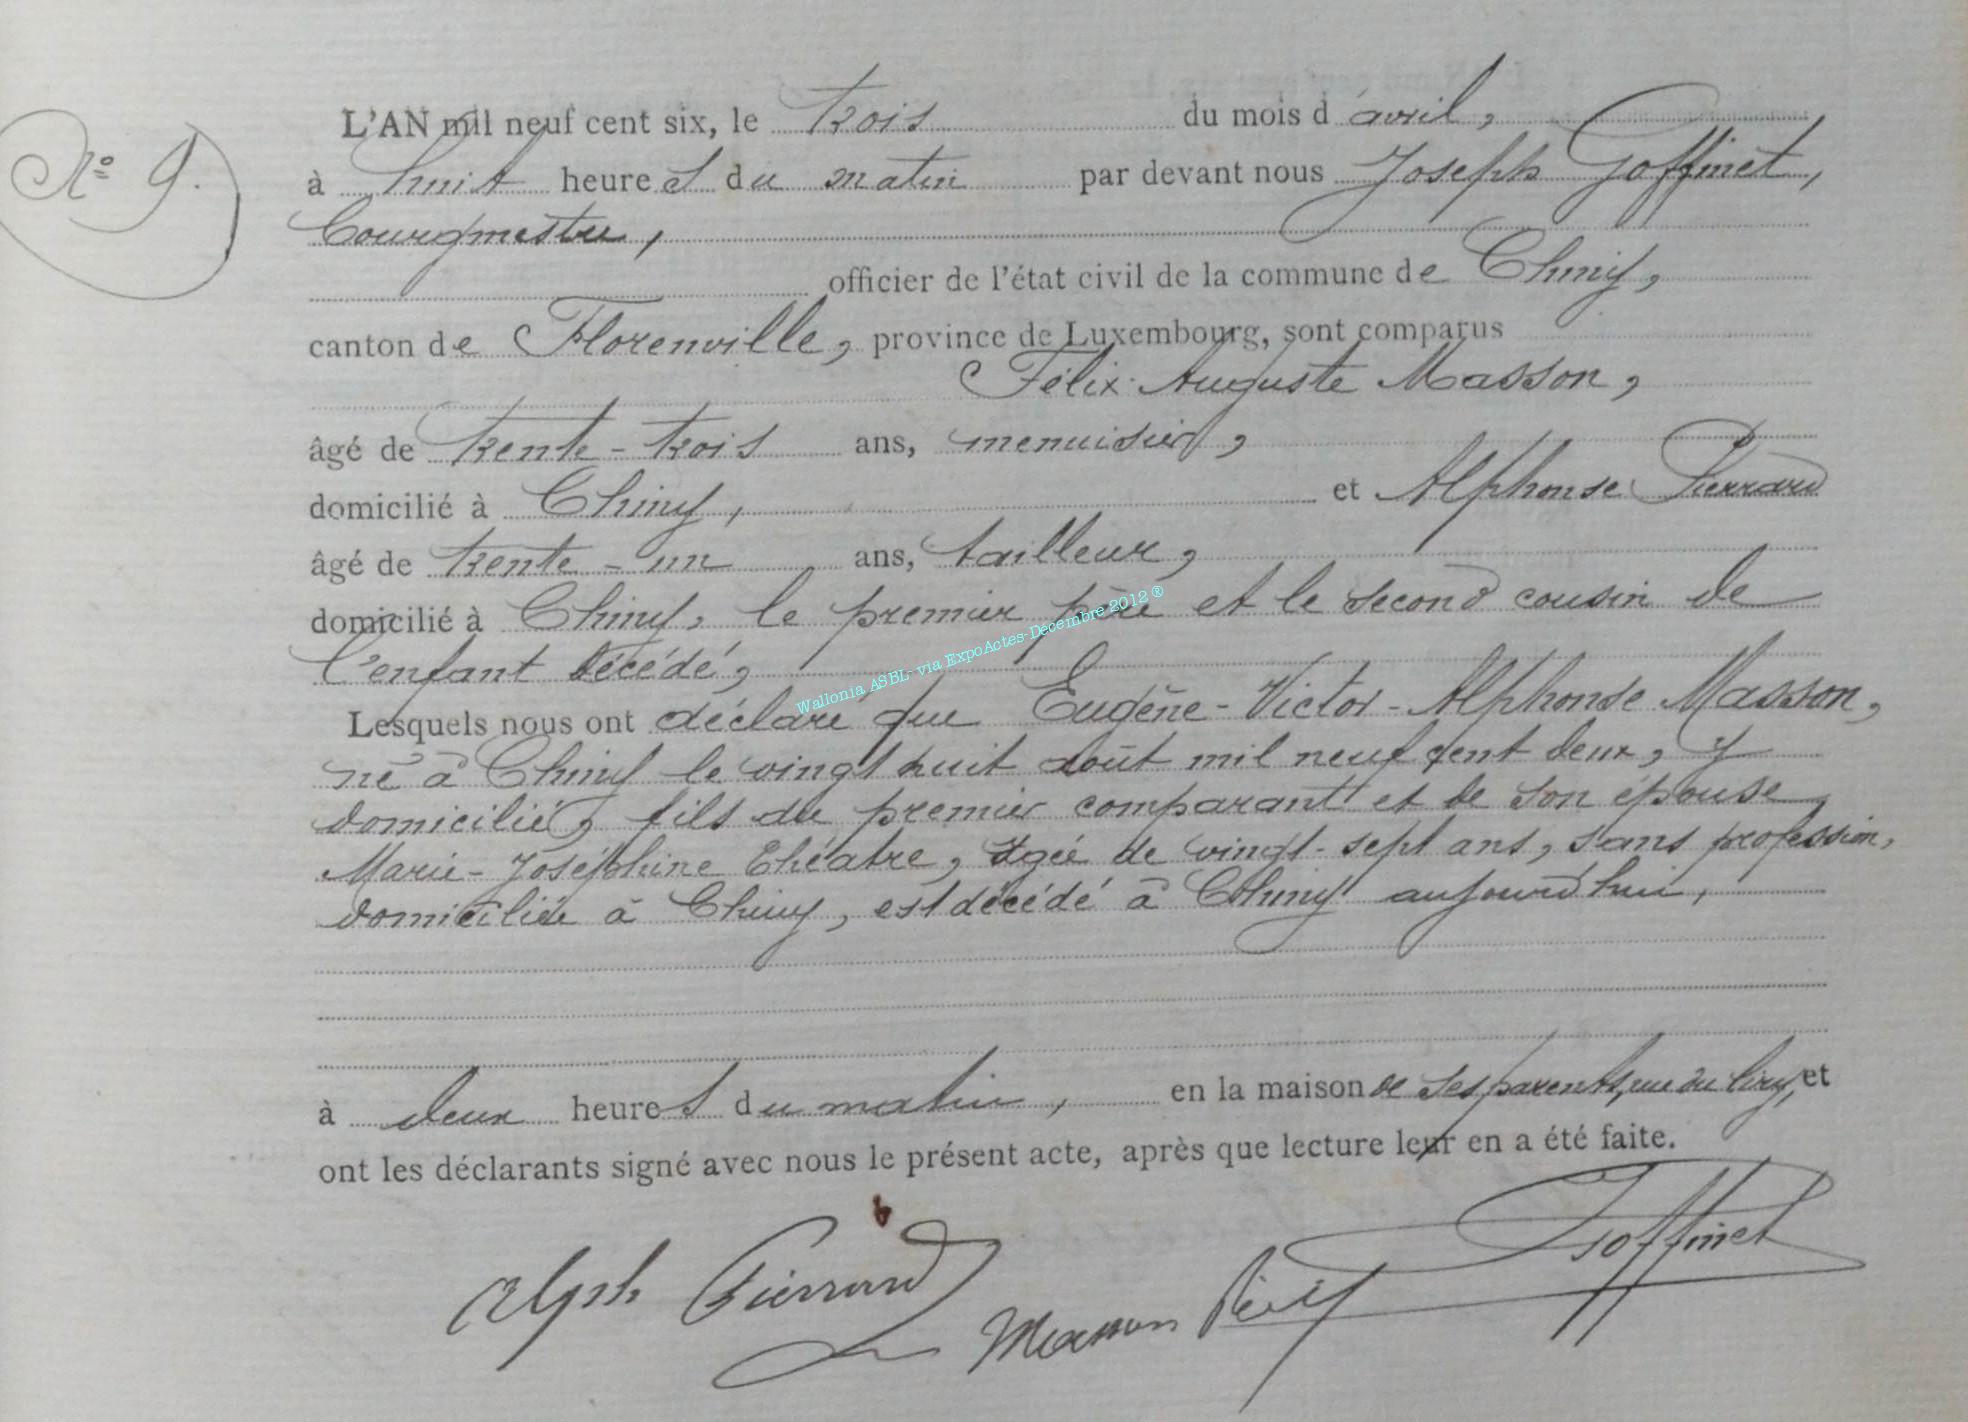 N° 9.
L'AN mil neuf cent six, le trois du mois d'avril,
à huit heures du matin par devant nous Joseph Goffinet,
bourgmestre,
officier de l'état civil de la commune de Chiny,
canton de Florenville, province de Luxembourg, sont comparus
Félix-Auguste Masson,
âgé de trente-trois ans, menuisier,
domicilié à Chiny, et Alphonse Pierrard
âgé de trente-un ans, tailleur,
domicilié à Chiny, le premier père et le second cousin de
l'enfant décédé,
Wallonia ASBL- via ExpoActes-Decembre 2012 ®
Lesquels nous ont déclaré que Eugène-Victor-Alphonse Masson,
né à Chiny le vingt huit août mil neuf cent deux, y
domicilié, fils du premier comparant et de son épouse
Marie-Joséphine Théatre, âgée de vingt-sept ans, sans profession,
domiciliée à Chiny, est décédé à Chiny aujourd'hui,
à deux heures du matin, en la maison de ses parents, rue du et
ont les déclarants signé avec nous le présent acte, après que lecture leur en a été faite.
Alph Pierrard Masson Goffinet